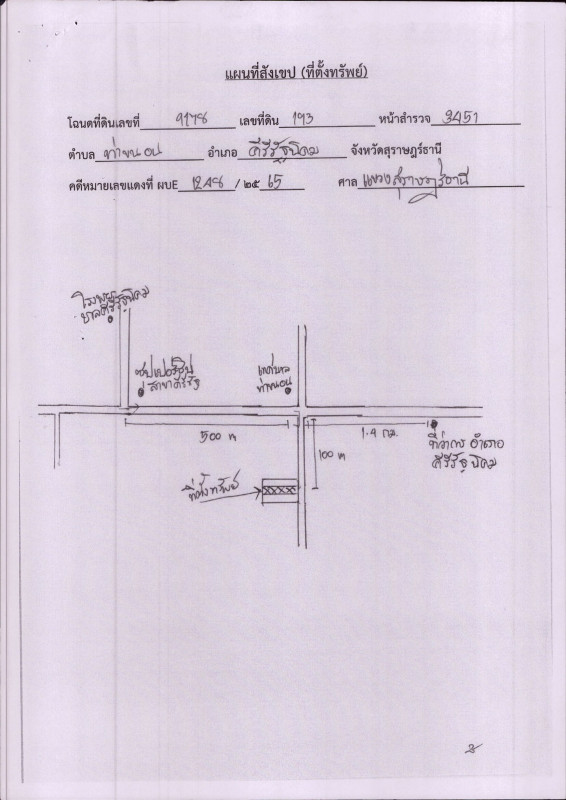 แผนที่สังเขป (ที่ตั้งทรัพย์)
โฉนดที่ดินเลขที่ 9178 เลขที่ดิน 193 หน้าสำรวจ 3451
ตำบล ท่าขนอน อำเภอ คีรีรัฐนิคม จังหวัดสุราษฎร์ธานี
คดีหมายเลขแดงที่ ผบE 1248 / ๒๕ 65 ศาล แขวงสุราษฎร์ธานี
โรงพยา
บาลคีรีรัฐนิคม
ซุปเปอร์ชีป
สาขาคีรีรัฐ
เทศบาล
ท่าขนอน
500 ท
1.4 กม.
100 ท
ที่ว่าการ อำเภอ
คีรีรัฐนิคม
ที่ตั้งทรัพย์